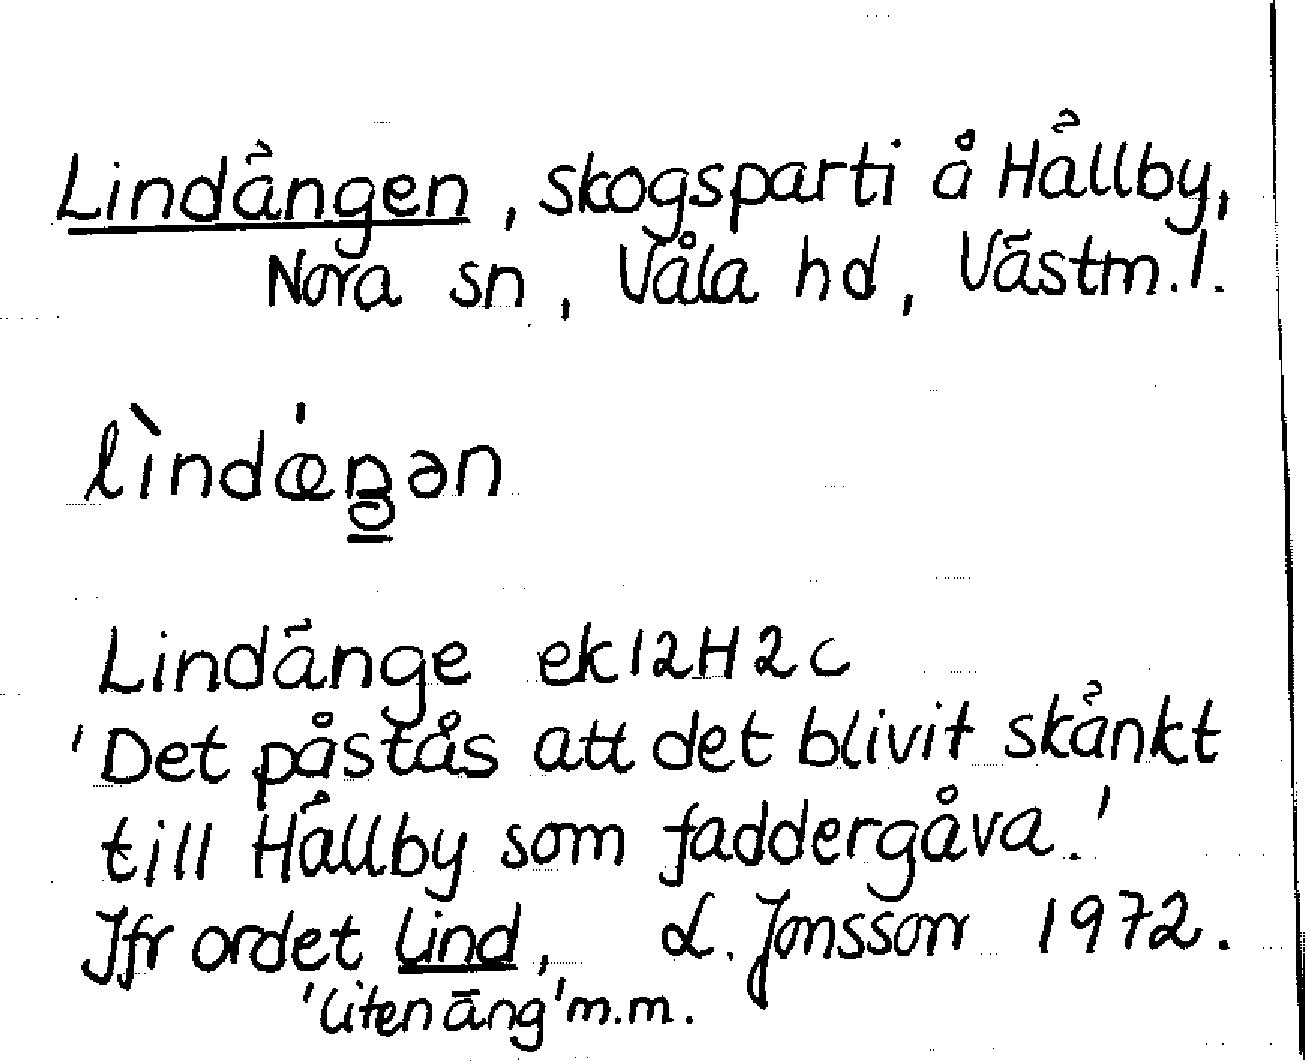 Lindängen, skogsparti å Hällby,
Nora sn, Våla hd, Västm.l.
lìndǽŋən
Lindänge ek 12H2c
'Det påstås att det blivit skänkt
till Hällby som faddergåva.'
Jfr ordet lind, L. Jonsson 1972.
'liten äng' m.m.